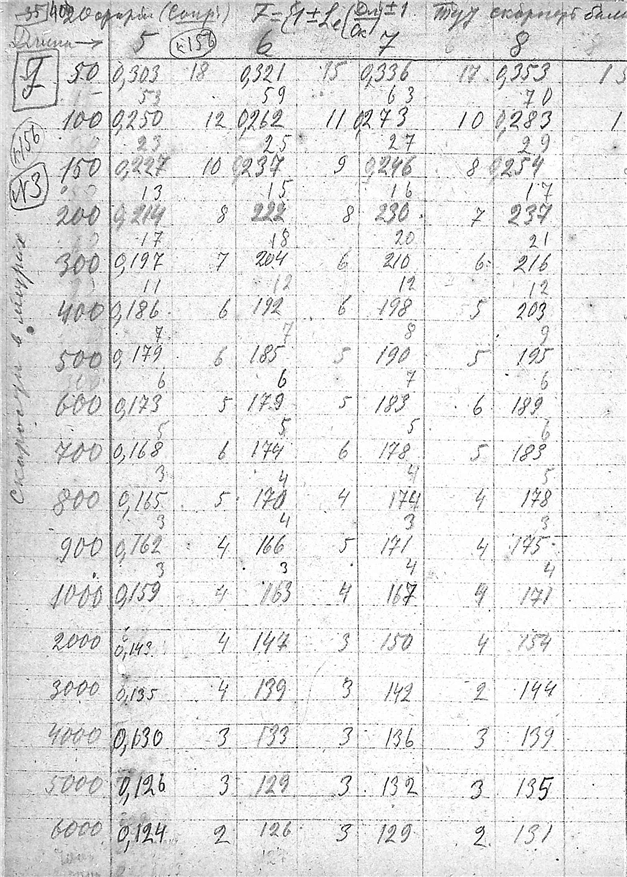 (Сопр.)
Длина → 5 к156 6 7 8
50 0,303 18 0,321 15 0,336 17 0,353 13
53 59 63 70
100 0,250 12 0,262 11 0,273 10 0,283 1
к156 23 25 27 29
150 0,227 10 0,237 9 0,246 8 0,254
N3 13 15 16 17
200 0,214 8 222 8 230 7 237
17 18 20 21
300 0,197 7 204 6 210 6 216
11 12 12 12
400 0,186 6 192 6 198 5 203
7 7 8 9
500 0,179 6 185 5 190 5 195
6 6 7 6
600 0,173 5 179 5 183 6 189
5 5 5 6
700 0,168 6 174 6 178 5 183
3 4 4 5
800 0,165 5 170 4 174 4 178
3 4 3 3
900 0,162 4 166 5 171 4 175
3 3 4 4
1000 0,159 4 163 4 167 4 171
2000 0,143 4 147 3 150 4 154
3000 0,135 4 139 3 142 2 144
4000 0,130 3 133 3 136 3 139
5000 0,126 3 129 3 132 3 135
6000 0,124 2 126 3 129 2 131
127
Скорость в метрах